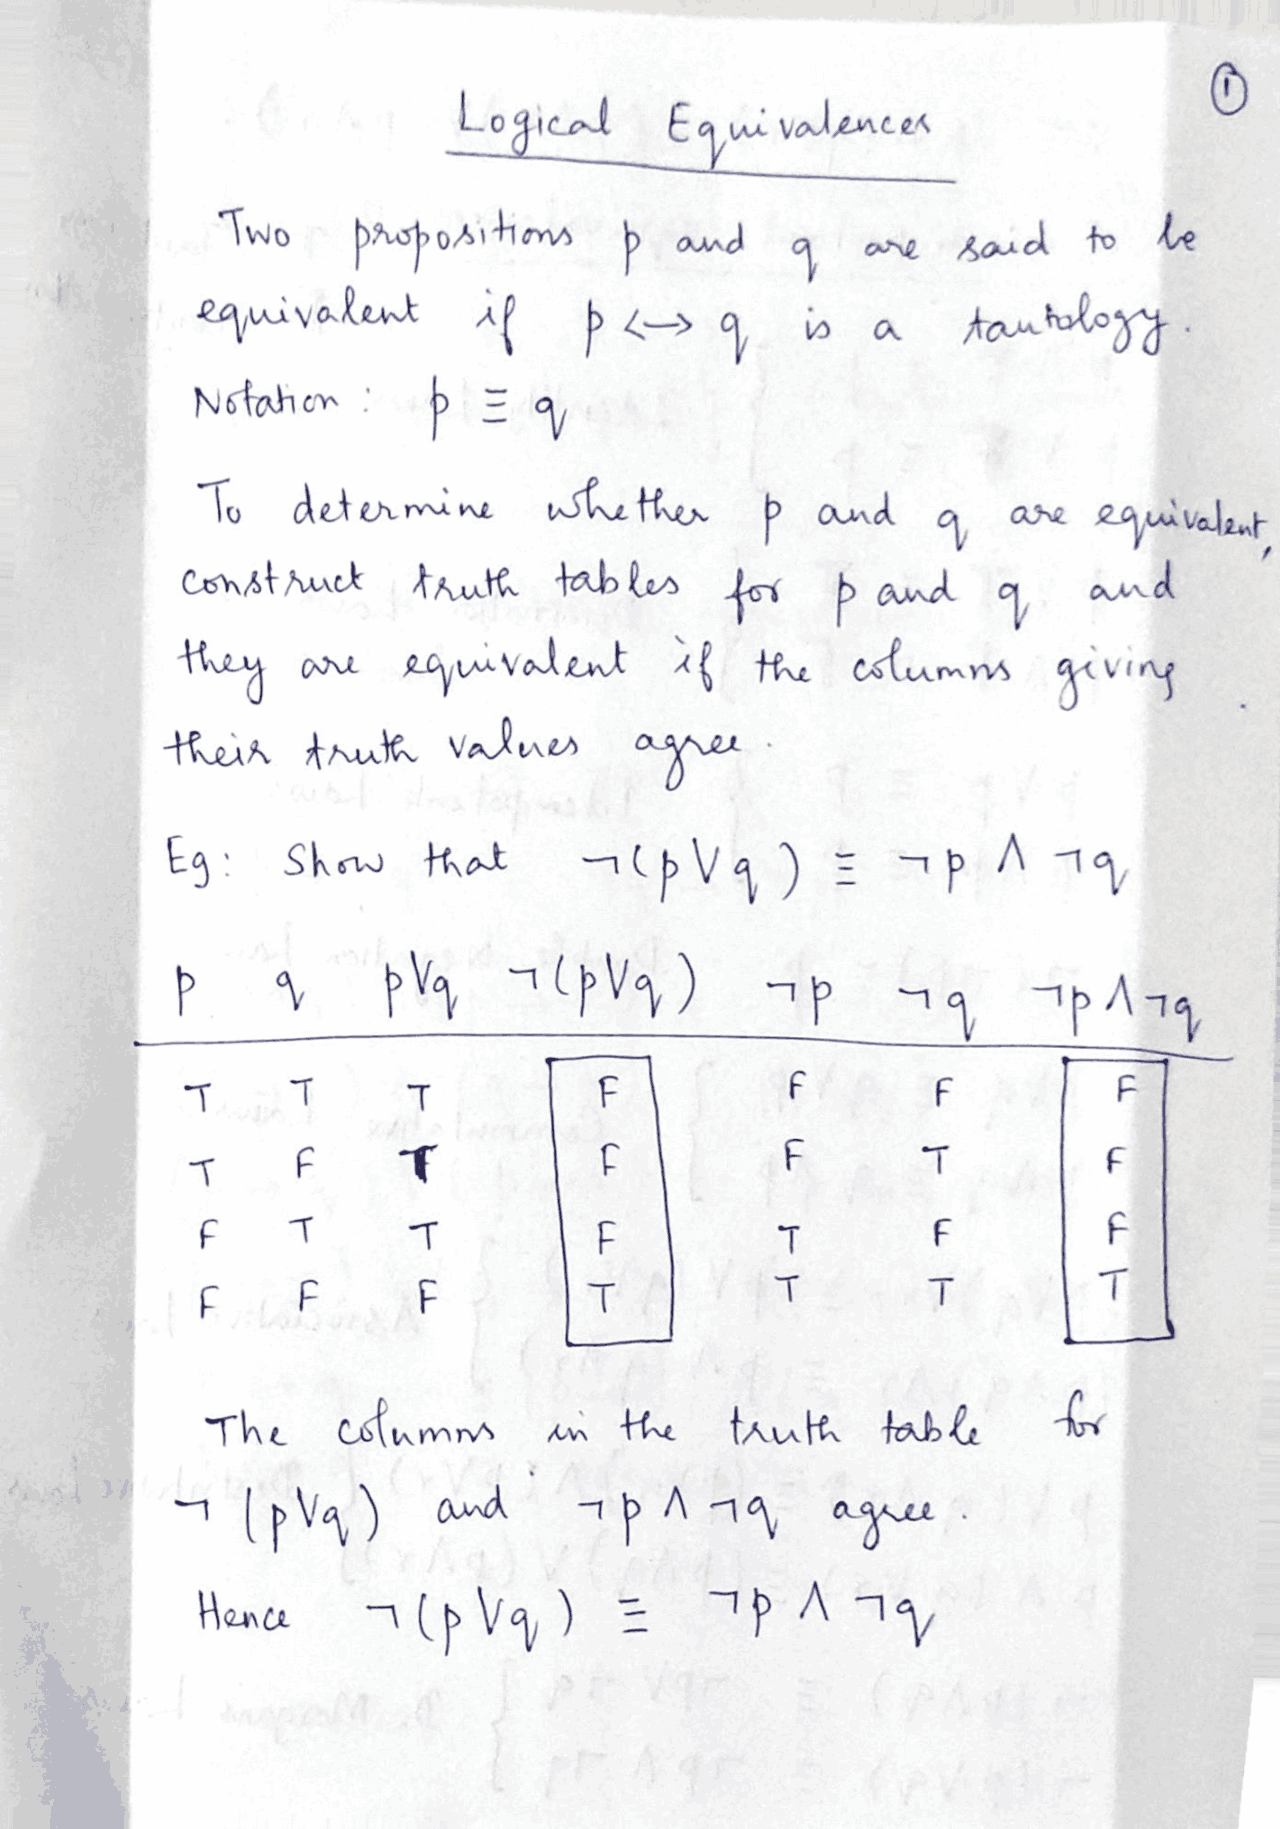 ①
Logical Equivalences
Two propositions p and q are said to be
equivalent if p ↔ q is a tautology.
Notation : p ≡ q
To determine whether p and q are equivalent,
construct truth tables for p and q and
they are equivalent if the columns giving
their truth values agree.
Eg: Show that ¬(p∨q) ≡ ¬p ∧ ¬q
p q p∨q ¬(p∨q) ¬p ¬q ¬p∧¬q
T T T F F F F
T F T F F T F
F T T F T F F
F F F T T T T
The columns in the truth table for
¬(p∨q) and ¬p ∧ ¬q agree.
Hence ¬(p∨q) ≡ ¬p ∧ ¬q